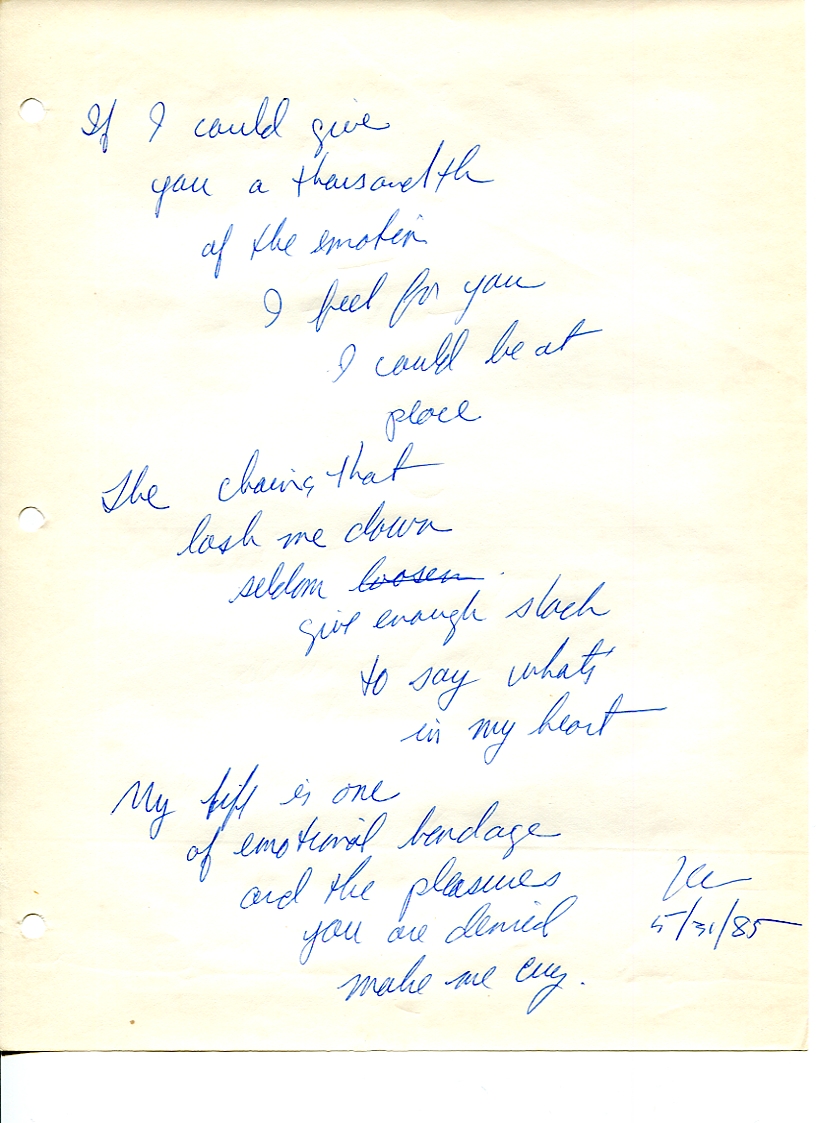 If I could give
you a thousandth
of the emotion
I feel for you
I could be at
peace
The chains that
lash me down
seldom loosen
give enough slack
to say what's
in my heart
My life is one
of emotional bondage
and the pleasures
you are denied
make me cry.
5/31/85